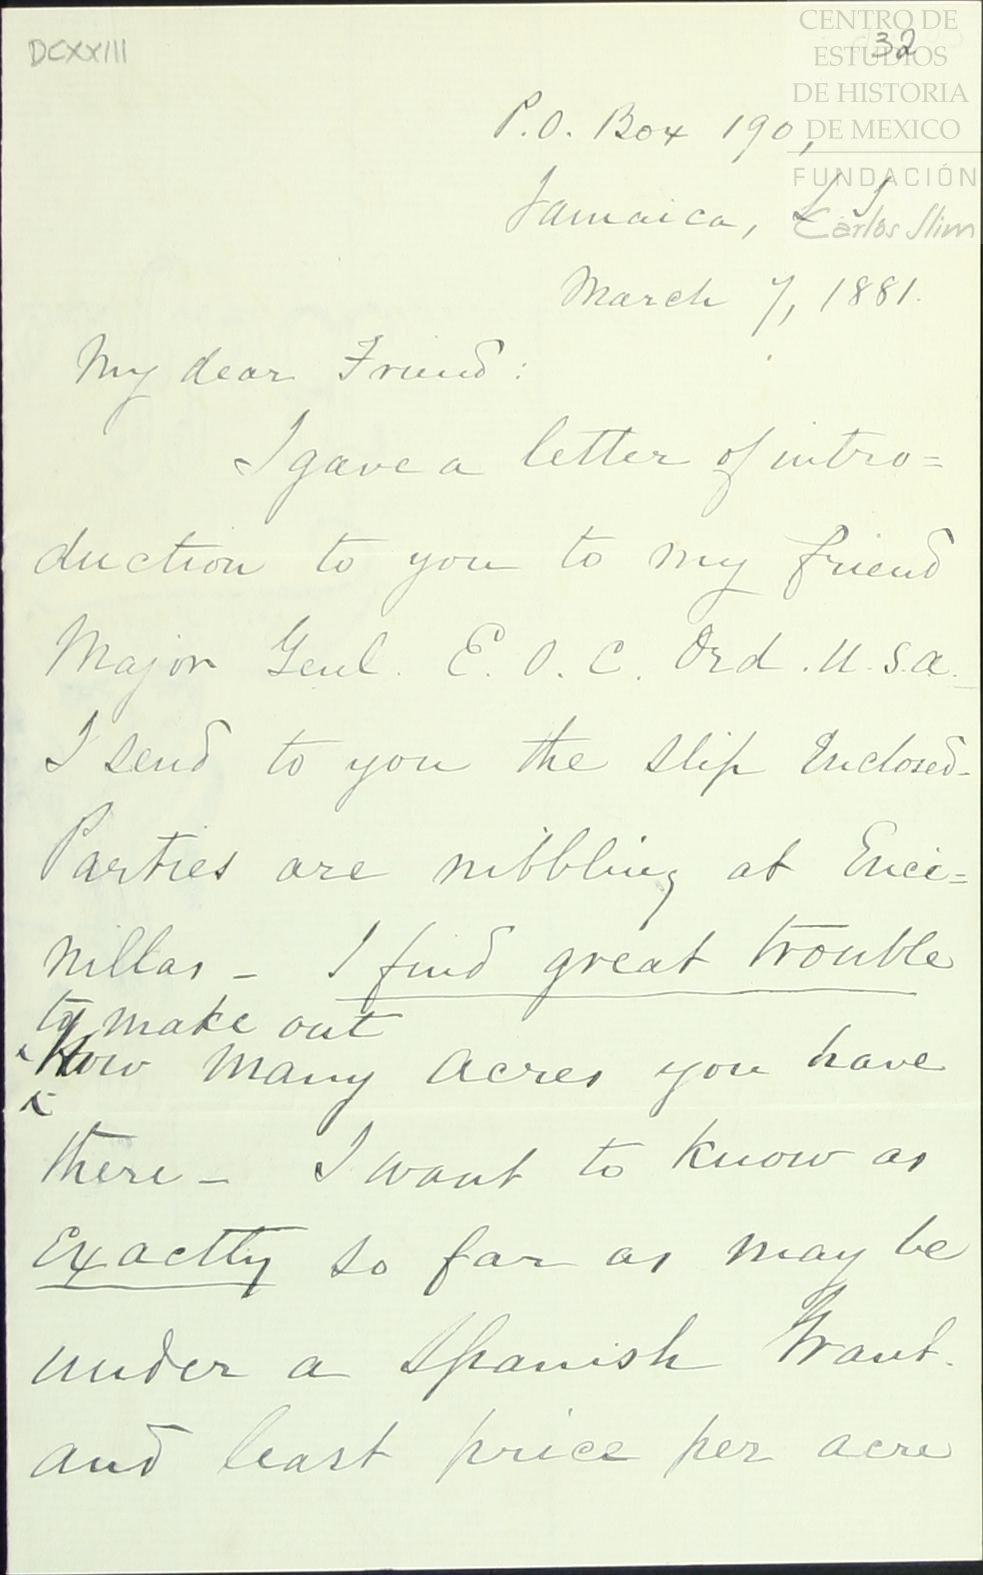 DCXXIII
32
CENTRO DE
ESTUDIOS
DE HISTORIA
DE MEXICO
FUNDACIÓN
Carlos Slim
P.O. Box 190,
Jamaica, L I
March 7, 1881.
My dear Friend:
I gave a letter of intro=
duction to you to my friend
Major Genl. E. O. C. Ord. U.S.A.
I send to you the slip Enclosed-
Parties are nibbling at Enci=
nillas - I find great trouble
to make out
How many acres you have
there - I want to know as
Exactly so far as may be
under a Spanish Grant.
and least price per acre